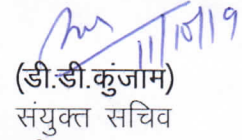 11/10/19
(डी.डी.कुंजाम)
संयुक्त सचिव